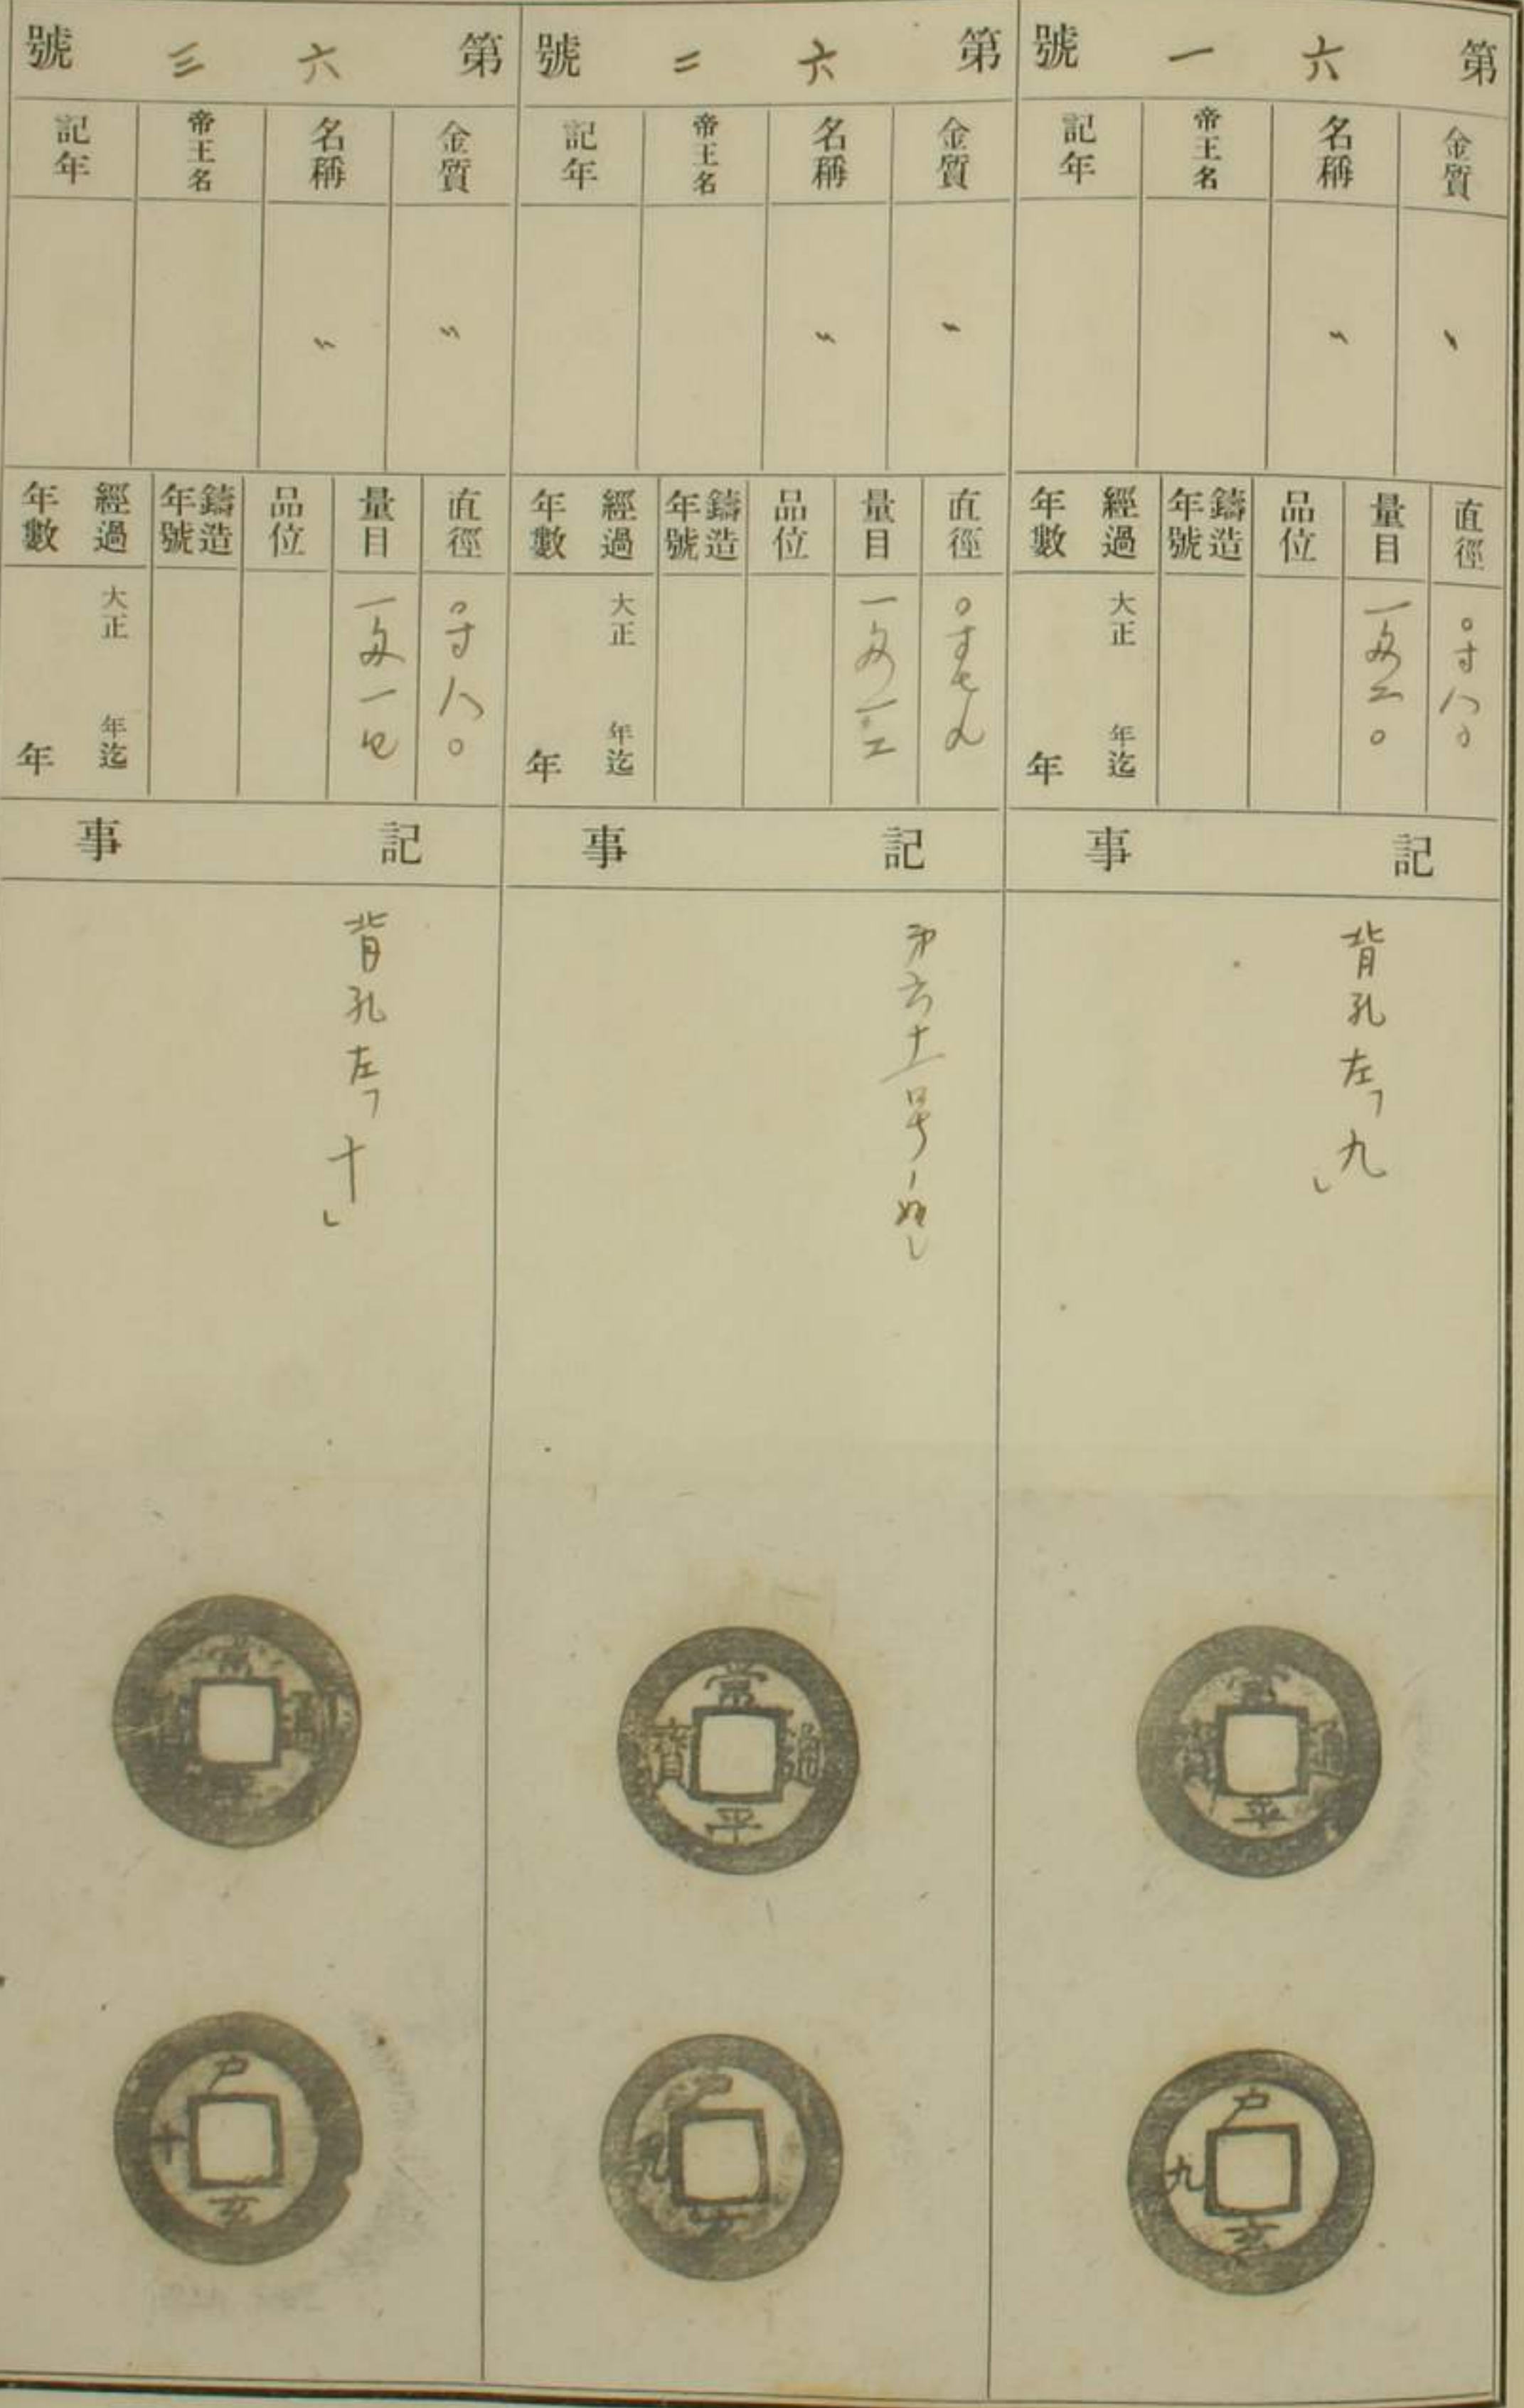 第六一號
金質
〃
名稱
〃
帝王名
記年
直徑
〇寸八〇
量目
一匁二〇
品位
鑄造年號
經過年數
大正 年迄
年
記事
背孔左「九」
常平通寶
戶
九
玄
第六二號
金質
〃
名稱
〃
帝王名
記年
直徑
〇寸七
量目
一匁
品位
鑄造年號
經過年數
大正 年迄
年
記事
第六十一号ノ如し
常平通寶
戶
九
玄
第六三號
金質
〃
名稱
〃
帝王名
記年
直徑
〇寸八〇
量目
一匁一七
品位
鑄造年號
經過年數
大正 年迄
年
記事
背孔左「十」
常平通寶
戶
十
玄